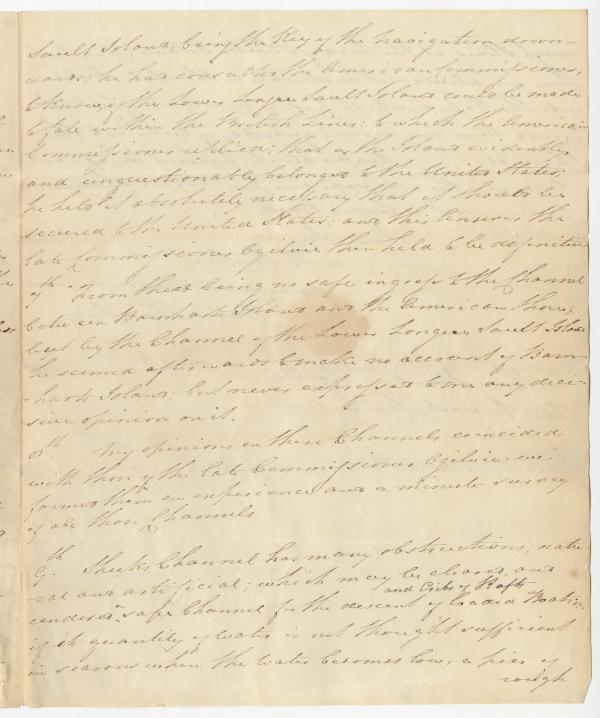 Sault Island, being the Key of the navigation down-
wards; he had consulted the American Commissioner,
to know, if the Lower Longue Sault Island could be made
to fall within the British Lines: to which the American
Commissioner replied; that as the Island evidently
and unquestionably belonged to the United States;
he held it absolutely necessary that it should be
secured to the United States; and this Answer the
late Commissioner Ogilvie then held to be definitive
7th. From there being no safe ingress to the Channel
between Barnharts Island and the American Shore;
but by the Channel of the Lower Longue Sault Island
he seemed afterwards to make no account of Barn-
-harts Island; but never expressed to me any deci-
sive opinion on it.
8th. My opinions on these Channels coincided
with those of the late Commissioner Ogilvie; we
formed them on experience and a minute survey
of all those Channels
9th. Sheeks Channel has many obstructions, natu-
ral and artificial; which may be cleared, and
and Cribs of Rafts
rendered a safe Channel for the descent of loaded Boats;
if its quantity of water is not thought sufficient
in seasons when the water becomes low, a pier of
rough